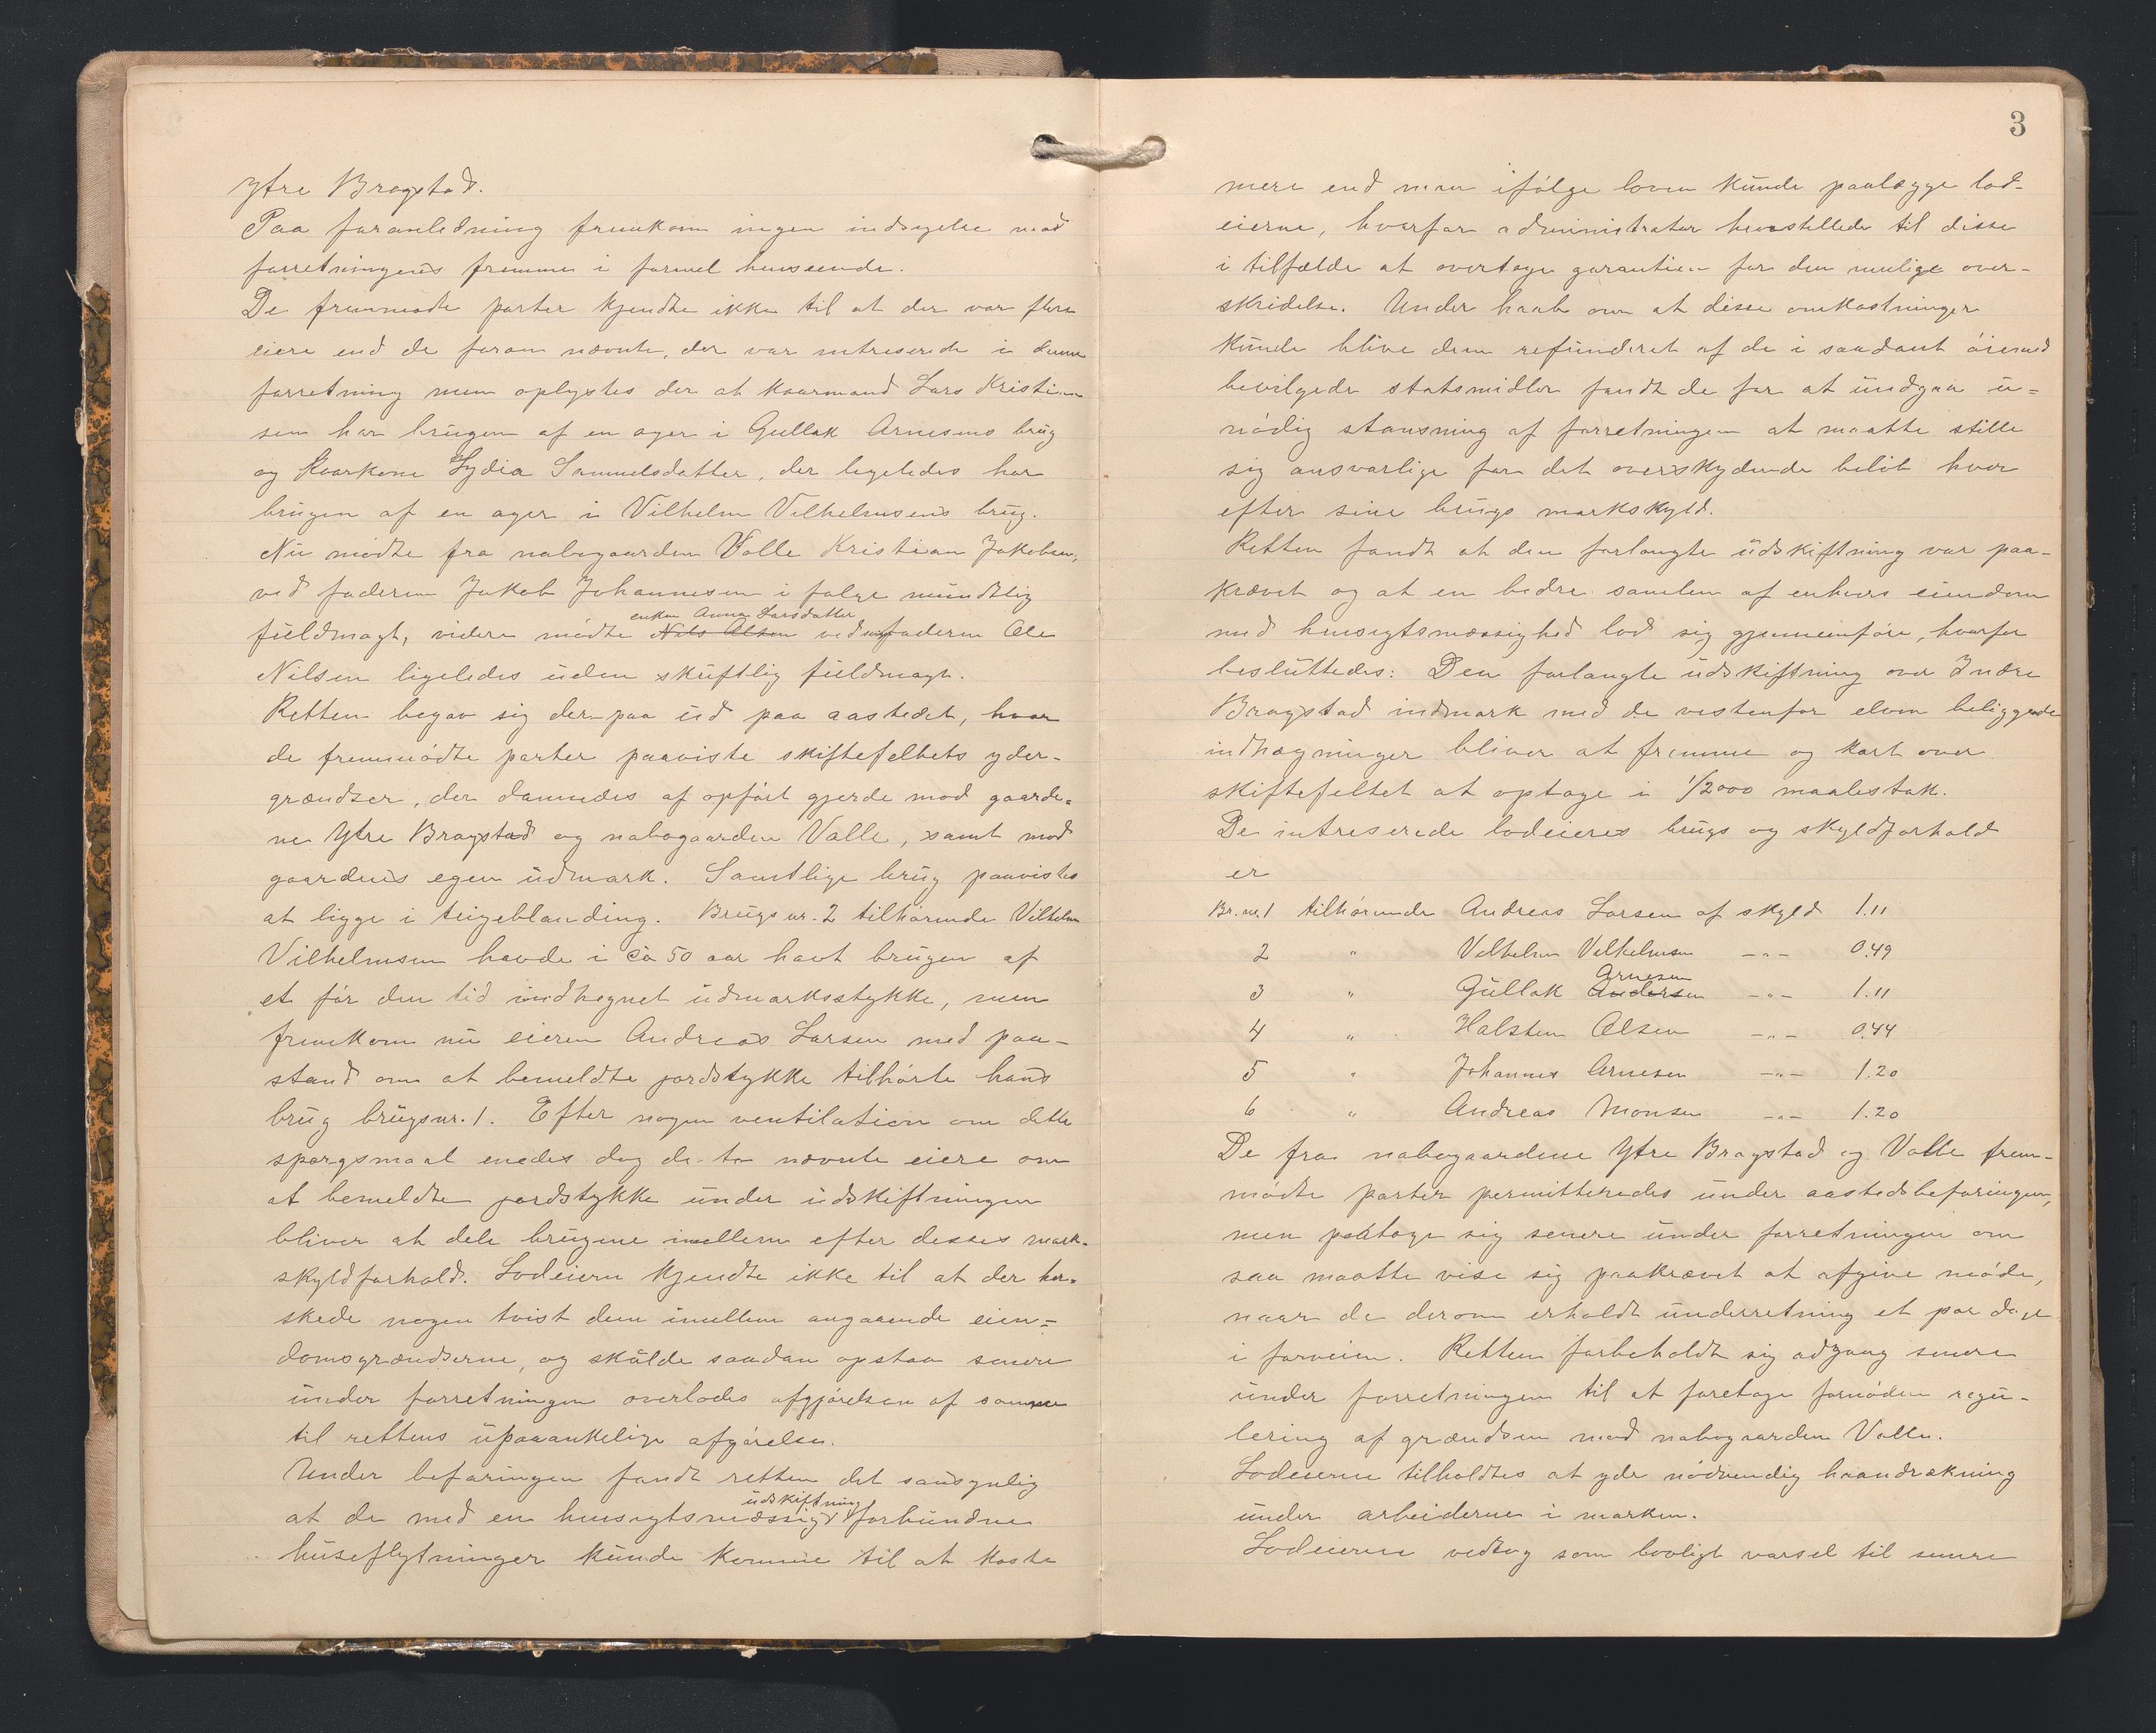 Ytre Bragstad.
Paa foranledning fremkom ingen indsigelse mod
forretningens fremme i formel henseende.
De fremmødte parter kjendte ikke til at der var flere
eiere end de foran nævnte, der var intreserede i denne
forretning men oplystes der at kaarmand Lars Kristian-
sen har brugen af en ager i Gullak Arnesens brug
og kaarkone Lydia Samuelsdatter, der ligeledes har
brugen af en ager i Vilhelm Vilhelmsens brug.
Nu mødte fra nabogaarden Valle Kristian Jakobsen,
ved faderen Jakob Johannesen i følge mundtlig
enken Anna Larsdatter
fuldmagt, videre mødte Nils Olsen ved faderen Ole
Nilsen ligeledes uden skriftlig fuldmagt.
Retten begav sig derpaa ud paa aastedet, hvor
de fremmødte parter paaviste skiftefeltets yder-
grændser, der dannedes af opført gjerde mod gaarde-
ne Ytre Bragstad og nabogaarden Valle, samt mod
gaardens egen udmark. Samtlige brug paavistes
at ligge i teigeblanding. Brugs nr. 2 tilhørende Vilhelm
Vilhelmsen havde i ca 50 aar havt brugen af
et før den tid indhegnet udmarksstykke, men
fremkom nu eieren Andreas Larsen med paa-
stand om at bemeldte jordstykke tilhørte hans
brug brugsnr. 1. Efter nogen ventilation om dette
spørgsmaal enedes dog de to nævnte eiere om
at bemeldte jordstykke under udskiftningen
bliver at dele brugene imellem efter desses mark-
skyldforhold. Lodeierne kjendte ikke til at der her-
skede nogen tvist dem imellem angaaende eien-
domsgrændserne, og skulde saadan opstaa senere
under forretningen overlodes afgjørelsen af samme
til rettens upaaankelige afgørelse.
Under befaringen fandt retten det sansynlig
udskiftning
at de med en hensigtsmæssig forbundne
huseflytninger kunde komme til at koste
3
mere end man ifølge loven kunde paalægge lod-
eierne, hvorfor administrator henstillede til disse
i tilfælde at overtage garantien for den mulige over-
skridelse. Under haab om at disse omkostninger
kunde blive dem refunderet af de i saadant øiemed
bevilgede statsmidler fandt de for at undgaa u-
nødig stansning af forretningen at maatte stille
sig ansvarlige for det overskydende beløb hver
efter sine brugs markskyld.
Retten fandt at den forlangte udskiftning var paa-
krævet og at en bedre samlen af enhvers eiendom
med hensigtsmæssighed lod sig gjennemføre, hvorfor
besluttedes: Den forlangte udskiftning over Indre
Bragstad indmark med de vestenfor elven beliggende
indhægninger bliver at fremme og kart over
skiftefeltet at optage i 1/2000 maalestok.
De intreserede lodeieres brugs og skyldforhold
er
Br. nr. 1 tilhørende Andreas Larsen af skyld 1.11
2 " Vilhelm Vilhelmsen -"- 0.49
Arnesen
3 " Gullak Andersen -"- 1.11
4 " Halsten Olsen -"- 0.44
5 " Johannes Arnesen -"- 1.20
6 " Andreas Monsen -"- 1.20
De fra nabogaardene Ytre Bragstad og Valle frem-
mødte parter permitteredes under aastedsbefaringen,
men paatoge sig senere under forretningen om
saa maatte vise sig paakrævet at afgive møde,
naar de derom erholdt underretning et par dage
i forveien. Retten forbeholdt sig adgang senere
under forretningen til at foretage fornøden regu-
lering af grændsen mod nabogaarden Valle.
Lodeierne tilholdtes at yde nødvendig haandrækning
under arbeiderne i marken.
Lodeierne vedtog som lovligt varsel til senere